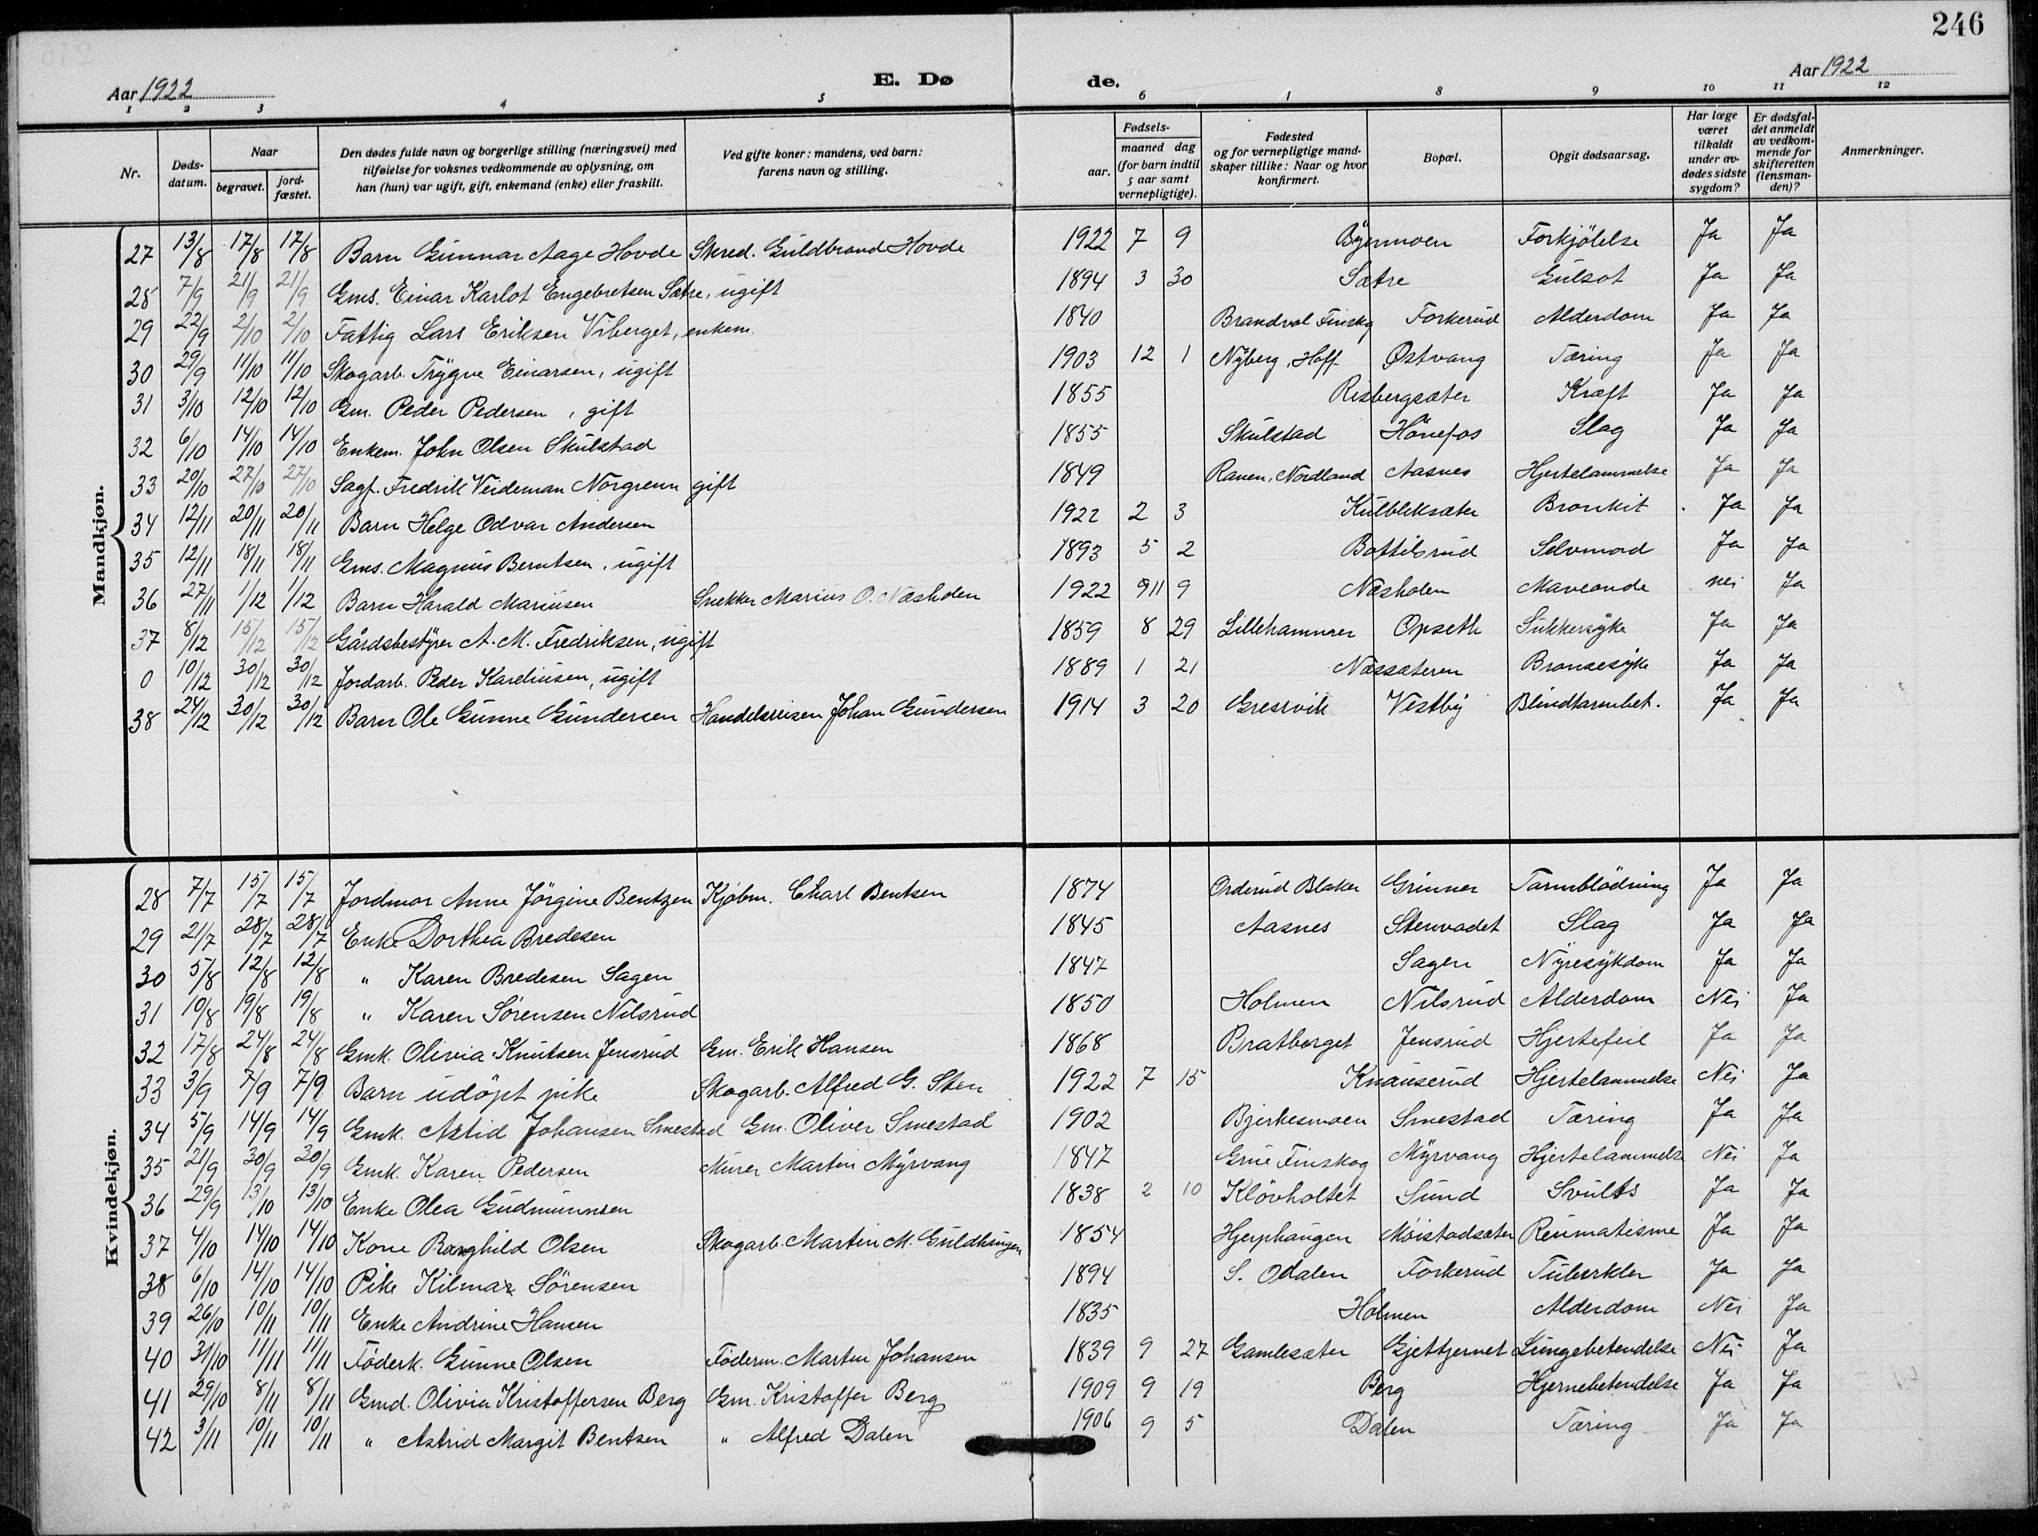 246
Aar 1922 E. Dø de. Aar 1922
1 2 3 4 5 6 1 8 9 10 11 12
Nr. Døds-datum. Naar begravet. jord-fæstet. Den dødes fulde navn og borgerlige stilling (næringsvei) med tilføielse for voksnes vedkommende av oplysning, om han (hun) var ugift, gift, enkemand (enke) eller fraskilt. Ved gifte koner: mandens, ved barn: farens navn og stilling. Fødsels- aar. maaned dag (for barn indtil 5 aar samt vernepligtige). Fødested og for vernepligtige mand-skaper tillike: Naar og hvor konfirmert. Bopæl. Opgit dødsaarsag. Har læge været tilkaldt under av-dødes sidste sygdom? Er dødsfal-det anmeldt av vedkom-mende for skifteretten (lensman-den)? Anmerkninger.
Mandkjøn.
27 13/8 17/8 17/8 Barn Gunnar Aage Hovde Skred. Guldbrand Hovde 1922 7 9 Byermoen Forkjölelse Ja Ja
28 7/9 21/9 21/9 Gms. Einar Karlot Engebretsen Sætre, ugift 1894 3 30 Sætre Gulsot Ja Ja
29 22/9 2/10 2/10 Fattig Lars Eriksen Viberget, enkem. 1840 Brandval Finskg Forkerud Alderdom Ja Ja
30 29/9 11/10 11/10 Skogarb. Trygve Einarsen, ugift 1903 12 1 Nyberg, Hoff Østvang Tæring Ja Ja
31 3/10 12/10 12/10 Gm. Peder Pedersen, gift 1855 Risbergsæter Kræft Ja Ja
32 6/10 14/10 14/10 Enkem. John Olsen Skulstad 1855 Skulstad Hönefos Slag Ja Ja
33 20/10 27/10 27/10 Sagf. Fredrik Veideman Norgrenn gift 1849 Ranen, Nordland Aasnes Hjertelammelse Ja Ja
34 12/11 20/11 20/11 Barn Helge Odvar Andersen 1922 2 3 Kulbliksæter Bronkit . Ja Ja
35 12/11 18/11 18/11 Gms. Magnus Berntsen, ugift 1893 5 2 Bottilsrud Selvmord Ja Ja
36 27/11 1/12 1/12 Barn Harald Mariusen Snekker Marius O. Næsholen 1922 11 9 Næsholen Maveonde nei Ja
37 8/12 15/12 15/12 Gårdsbestyrer A. M. Fredriksen, ugift 1859 8 29 Lillehammer Opseth Sukkersyke Ja Ja
0 10/12 30/12 30/12 Jordarb. Peder Kareliusen, ugift 1889 1 21 Næssæteren Bronsesyke Ja Ja
38 24/12 30/12 30/12 Barn Ole Gunne Gundersen Handelsreisen Johan Gundersen 1914 3 20 Gresvik Vestby Blindtarmbet. Ja Ja
Kvindekjøn.
28 7/7 15/7 15/7 Jordmor Anne Jörgine Bentzen Kjöbm. Charl Bentsen 1874 Orderud Blaker Grinner Tarmblödning Ja Ja
29 21/7 28/7 28/7 Enke Dorthea Bredesen 1845 Aasnes Stenvadet Slag Ja Ja
30 5/8 12/8 12/8 " Karen Bredesen Sagen 1847 Sagen Nyresykdom Ja Ja
31 10/8 19/8 19/8 " Karen Sørensen Nilsrud 1850 Holmen Nilsrud Alderdom Nei Ja
32 17/8 24/8 24/8 Gmk. Olivia Knutsen Jensrud Gm. Erik Hansen 1868 Bratberget Jensrud Hjertefeil Ja Ja
33 3/9 7/9 7/9 Barn udöpt pike Skogarb. Alfred G. Sten 1922 7 15 Knauserud Hjertelammelse Nei Ja
34 5/9 14/9 14/9 Gmk. Astid Johansen Smestad Gm. Oliver Smestad 1902 Bjerkesmoen Smestad Tæring Ja Ja
35 21/9 30/9 30/9 Gmk. Karen Pedersen Murer Martin Myrvang 1847 Grue Finskog Myrvang Hjertelammelse Nei Ja
36 29/9 13/10 13/10 Enke Olea Gudmunnsen 1838 2 10 Klövholtet Sund Svulst Ja Ja
37 4/10 14/10 14/10 Kone Borghild Olsen Skogarb. Martin M. Guldhaugen 1854 Hjerphaugen Moistadsæter Reumatisme Ja Ja
38 6/10 14/10 14/10 Pike Kilmar Sörensen 1894 S. Odalen Forkerud Tuberkler Ja Ja
39 26/10 10/11 10/11 Enke Andrine Hansen 1835 Holmen Alderdom Nei Ja
40 31/10 11/11 11/11 Föderk. Gunne Olsen Föderm. Martin Johansen 1839 9 27 Gamlesæter Gjettjernet Lungebetendelse Nei Ja
41 29/10 8/11 8/11 Gmd. Olivia Kristoffersen Berg Gm. Kristoffer Berg 1909 9 19 Berg Hjernebetendelse Ja Ja
42 3/11 10/11 10/11 " Astrid Margit Bentsen " Alfred Dalen 1906 9 5 Dalen Tæring Ja Ja